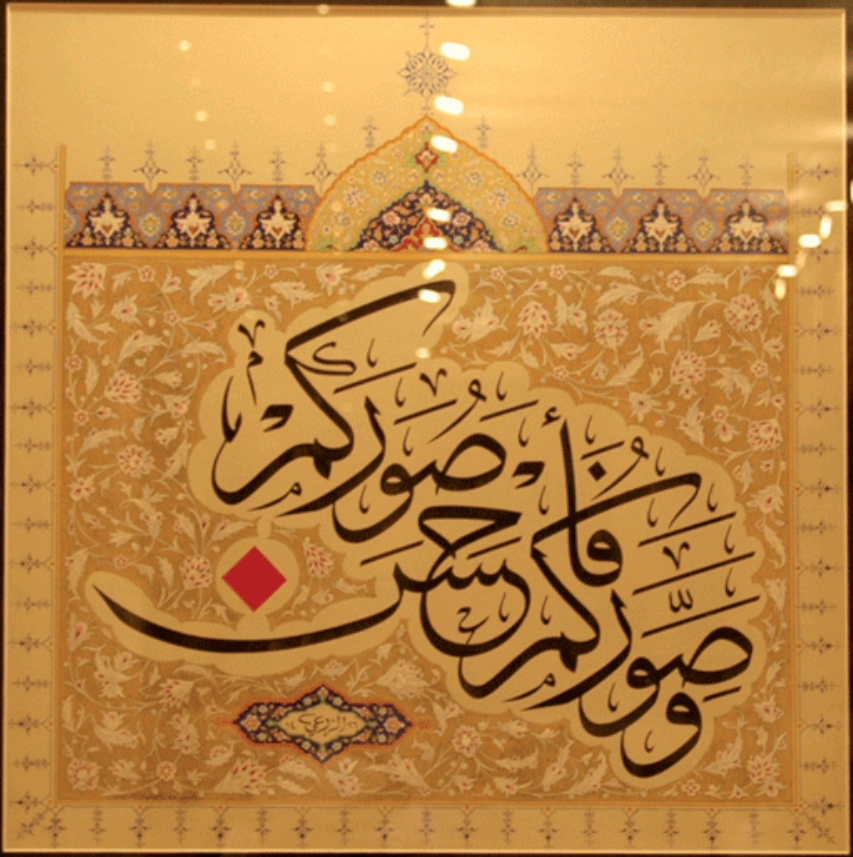 وَصَوَّرَكُمْ فَأَحْسَنَ صُوَرَكُمْ